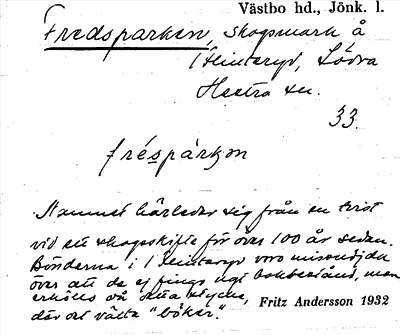 Västbo hd., Jönk. l.
Fredsparken, skogsmark å
1 Flinteryd, Södra
Hestra sn.
33.
fréspárkon
Namnet härleder sig från en tvist
vid ett skogsskifte för över 100 år sedan.
Bönderna i Flinteryd voro missnöjda
över att de ej fingo ngt bokbestånd, men
erhöllo så detta stycke,
där det växte "böker".
Fritz Andersson 1932